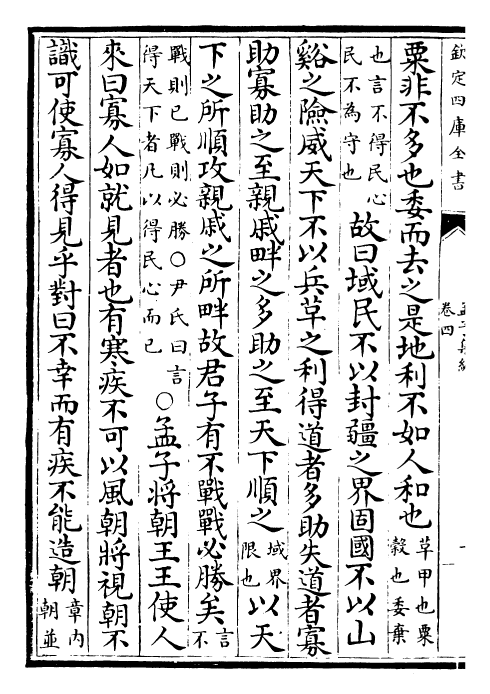 欽定四庫全書
卷四
粟非不多也委而去之是地利不如人和也
革甲也粟
穀也委棄
也言不得民心
民不為守也
故曰域民不以封疆之界固國不以山
谿之險威天下不以兵革之利得道者多助失道者寡
助寡助之至親戚畔之多助之至天下順之
域界
限也
以天
下之所順攻親戚之所畔故君子有不戰戰必勝矣
言
不
戰則已戰則必勝○尹氏曰言
得天下者凡以得民心而已
○孟子將朝王王使人
來曰寡人如就見者也有寒疾不可以風朝將視朝不
識可使寡人得見乎對曰不幸而有疾不能造朝
章内
朝並